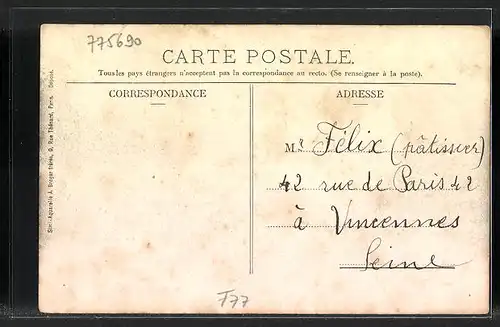 775690
CARTE POSTALE.
Tous les pays étrangers n'acceptent pas la correspondance au recto. (Se renseigner à la poste).
CORRESPONDANCE
ADRESSE
Mr Félix (pâtissier)
42 rue de Paris 42
à Vincennes
Seine
T77
A. Breger frères, 9, Rue Thénard, Paris. Déposé.